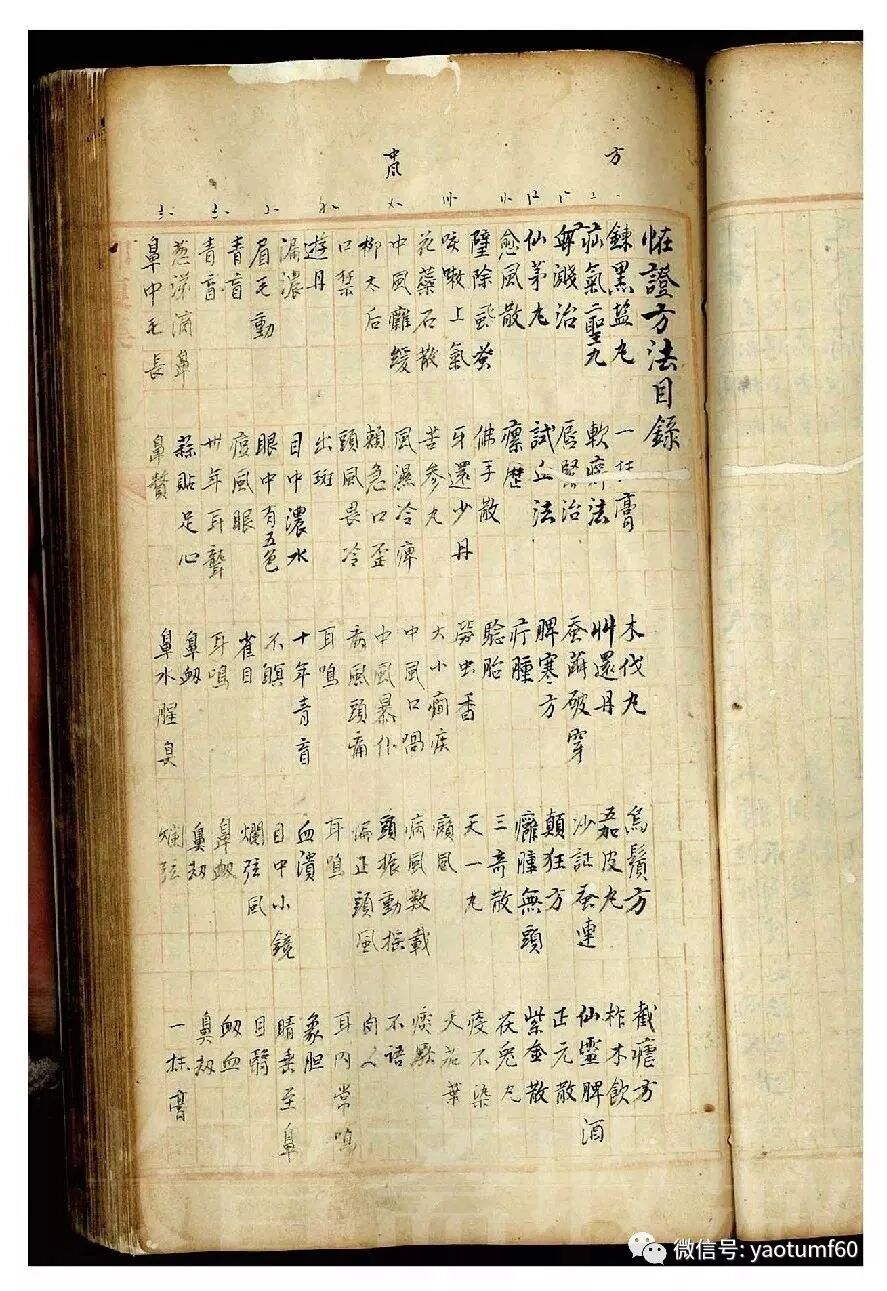 方
中風
恠證方法目錄
鍊黑盐丸 一抹膏 木伐丸 烏鬚方 截瘧方
疝氣二聖丸 軟癤法 艸還丹 五加皮丸 柞木飲
唇緊治 蚕繭破穿 沙証蚕連 仙靈脾酒
仙茅丸 試立法 脾寒方 顛狂方 正元散
愈風散 瘰癧 疔腫 癰腫無頭 紫金散
壁除虱 佛手散 驗胎 三奇散 茯兔丸
咳嗽上氣 牙還少丹 勞虫香 天一丸 疫不染
花蘂石散 苦參丸 大小痫疾 癲風 天茄葉
中風癱緩 風濕冷痺 中風口喎 病風數載 痰厥
柳太后 頰急口歪 中風暴仆 頭振動搖 不語
口禁 頭風畏冷 病風頭痛 偏正頭風 肉人
遊丹 出斑 耳鳴 耳鳴 耳內常鳴
漏濃 目中濃水 十年青盲 血潰 象胆
眉毛動 眼中有五色 不瞑 目中小鏡 睛垂至鼻
青盲 痘風眼 雀目 爛弦風 目翳
青盲 卅年耳聾 耳鳴 鼻衂 衂血
葱涕滴鼻 蒜貼足心 鼻衂 鼻衂 鼻衂
鼻中毛長 鼻贅 鼻水腥臭 爛弦 一抹膏
微信号: yaotumf60